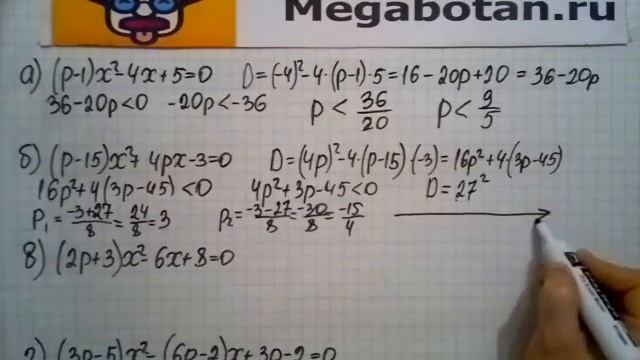 Megabotan.ru
а) (p-1)x²-4x+5=0 D=(-4)²-4·(p-1)·5=16-20p+20=36-20p
36-20p<0 -20p<-36 p<36/20 p<9/5
б) (p-15)x²+4px-3=0 D=(4p)²-4·(p-15)·(-3)=16p²+4·(3p-45)
16p²+4(3p-45)<0 4p²+3p-45<0 D=27²
p₁=-3+27/8=24/8=3 p₂=-3-27/8=-30/8=-15/4
в) (2p+3)x²-6x+8=0
г) (3p-5)x²-(6p-2)x+3p-2=0